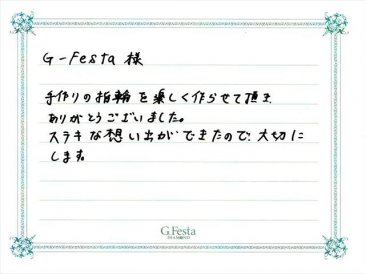 G-Festa 様
手作りの指輪を楽しく作らせて頂き
ありがとうございました。
ステキな想い出ができたので、大切に
します。
G.Festa
DIAMOND